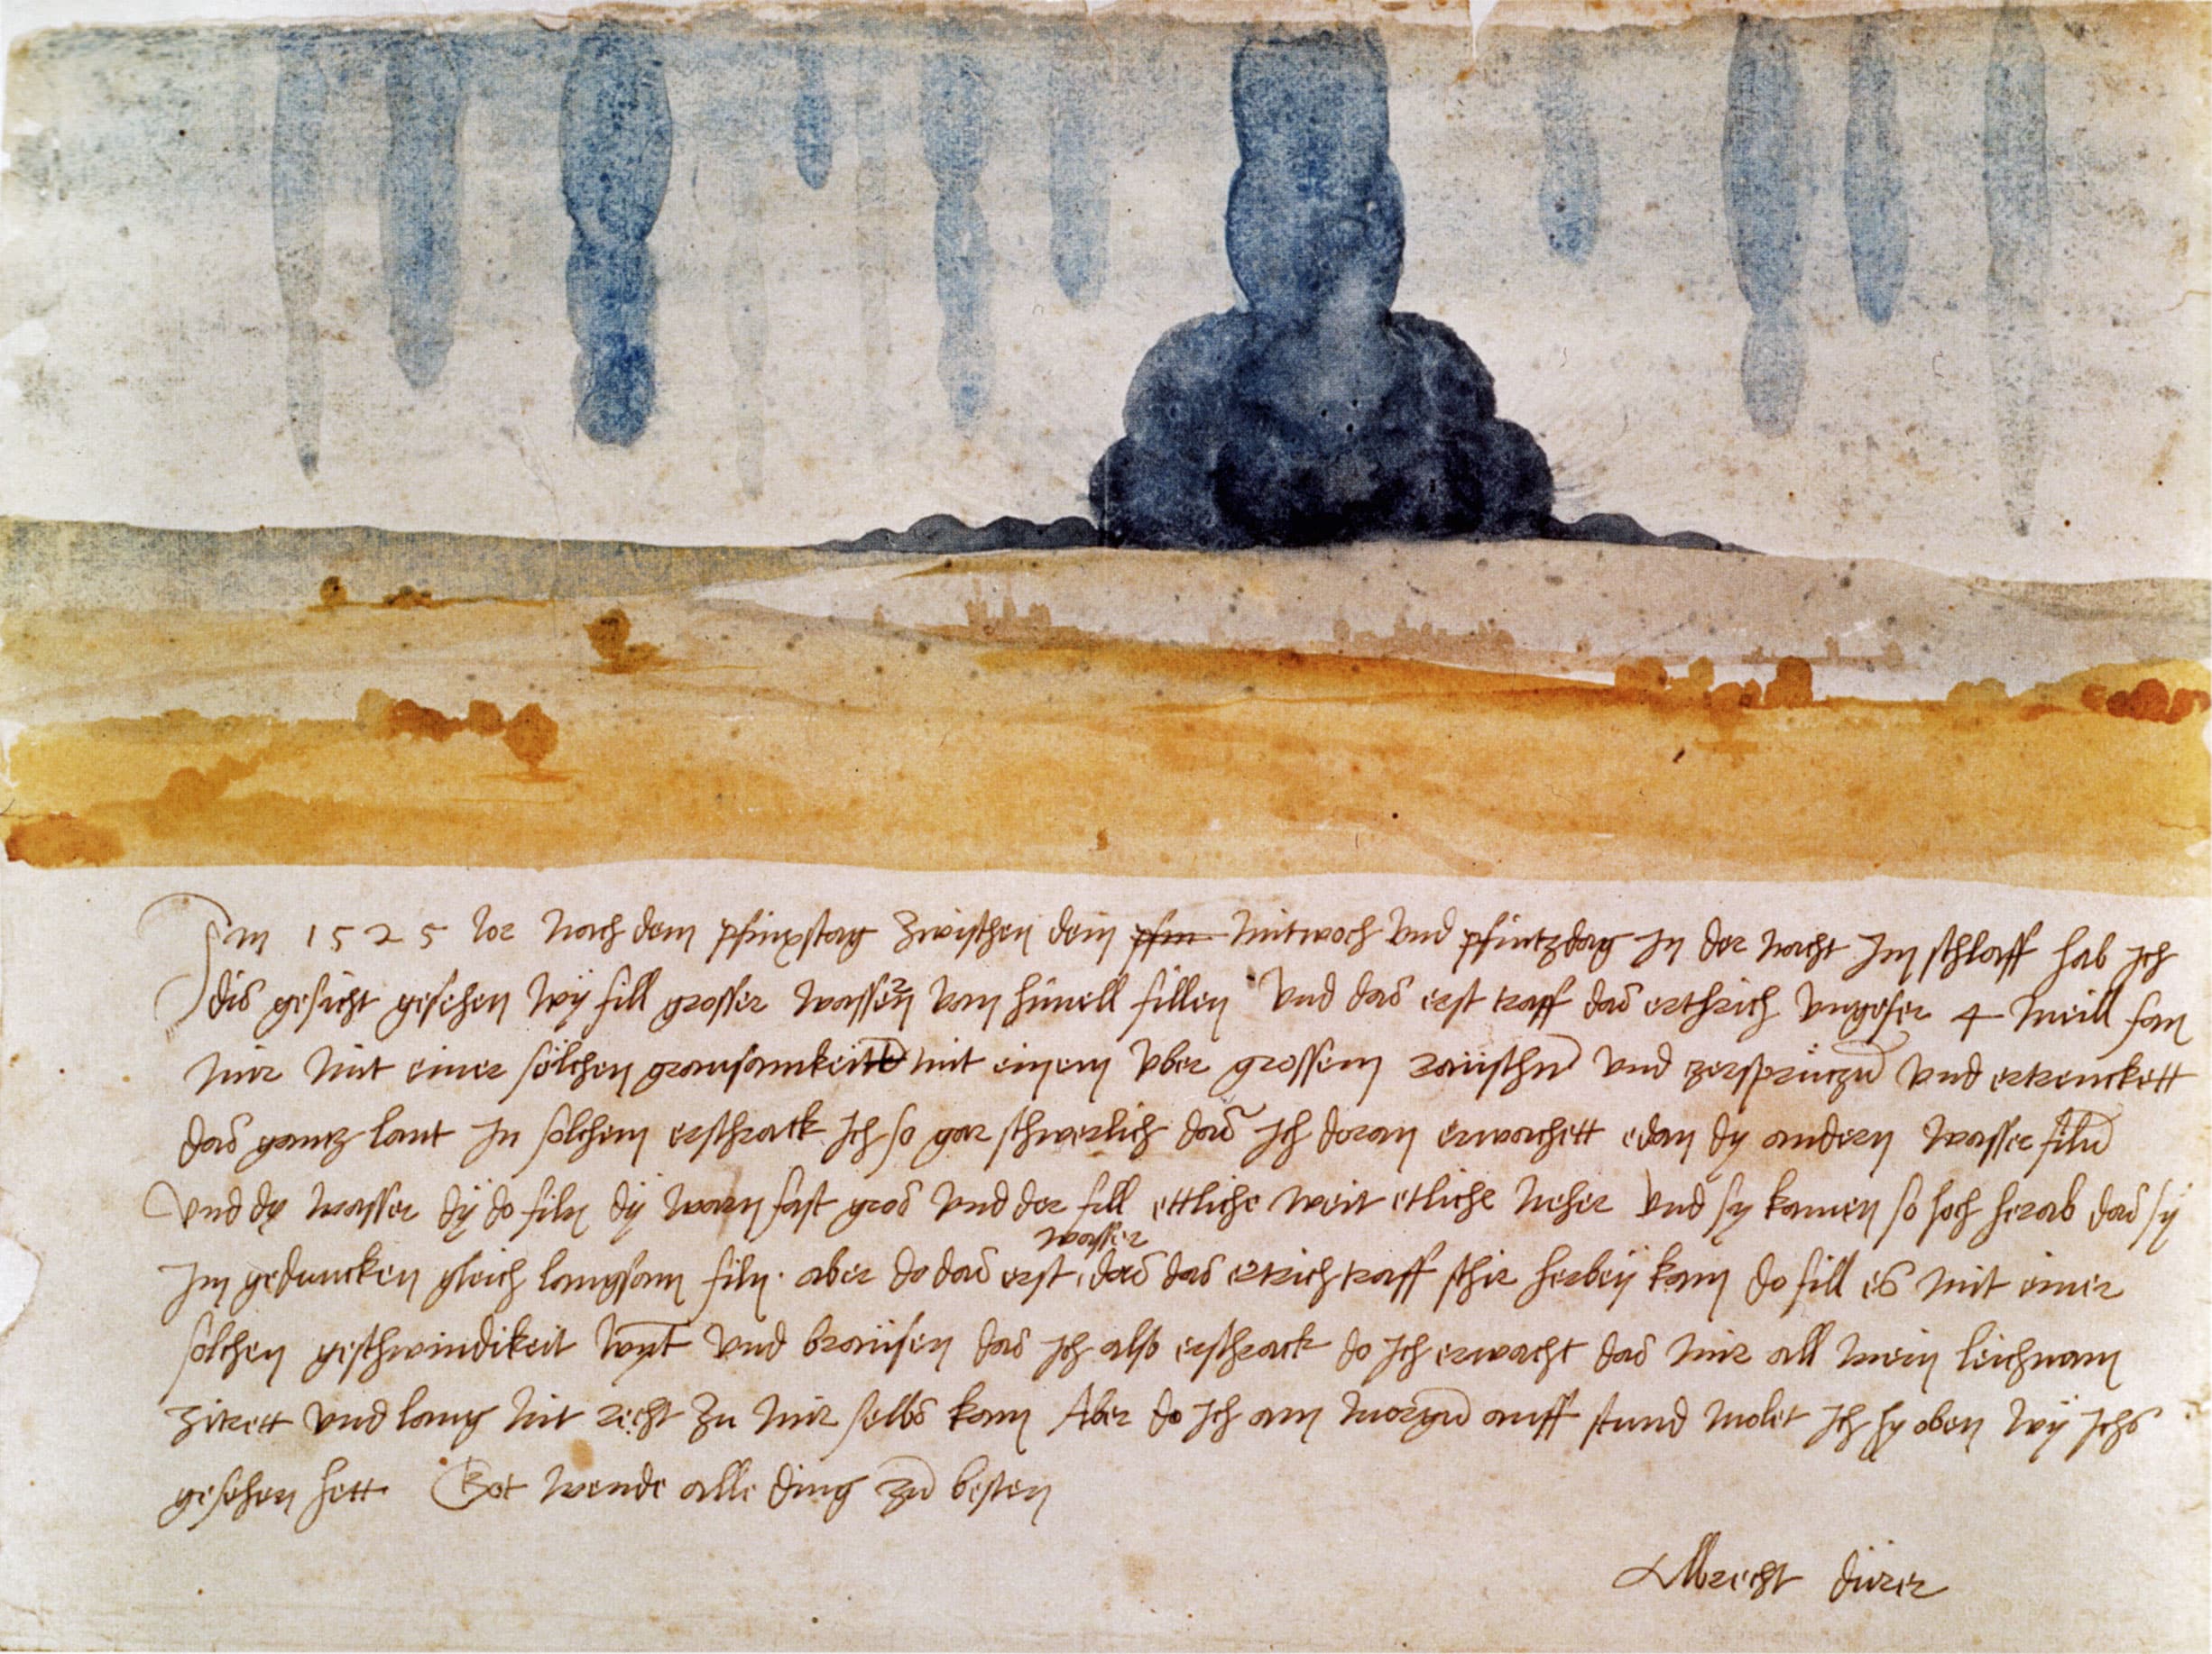 Im 1525 Jor nach dem pfinxstag zwischen dem pfin mitwoch und pfintzdag in der nacht im schlaff hab ich
dis gesicht gesehen wy fill grosser wassern vom himell fillen und das erst traff das erthrich ungefer 4 meill fan
mir mit einer sölchen grausamkeitt mit einem uber grossem raüschn und zersprützn und ertrenckett
das gantz lant In sölchem erschrack ich so gar schwerlich das ich doran erwachett edan dy andern wasser filn
und dy wasser dy do filn dy warn fast gros und der fill ettliche weit etliche neher und sy kamen so hoch herab das sy
im geduncken gleich langsam filn. aber do das erst
wasser
das das ertrich traff schir herbey kam do fill es mit einer
sölchen geschwindikeit wynt und braüsen das ich also erschrack do ich erwacht das mir all mein leichnam
zitrett und lang nit recht zu mir selbs kam Aber do ich am morgn auff stund molet ich hy oben wy ichs
gesehen hett. Got wende alle ding zu besten
Albrecht dürer